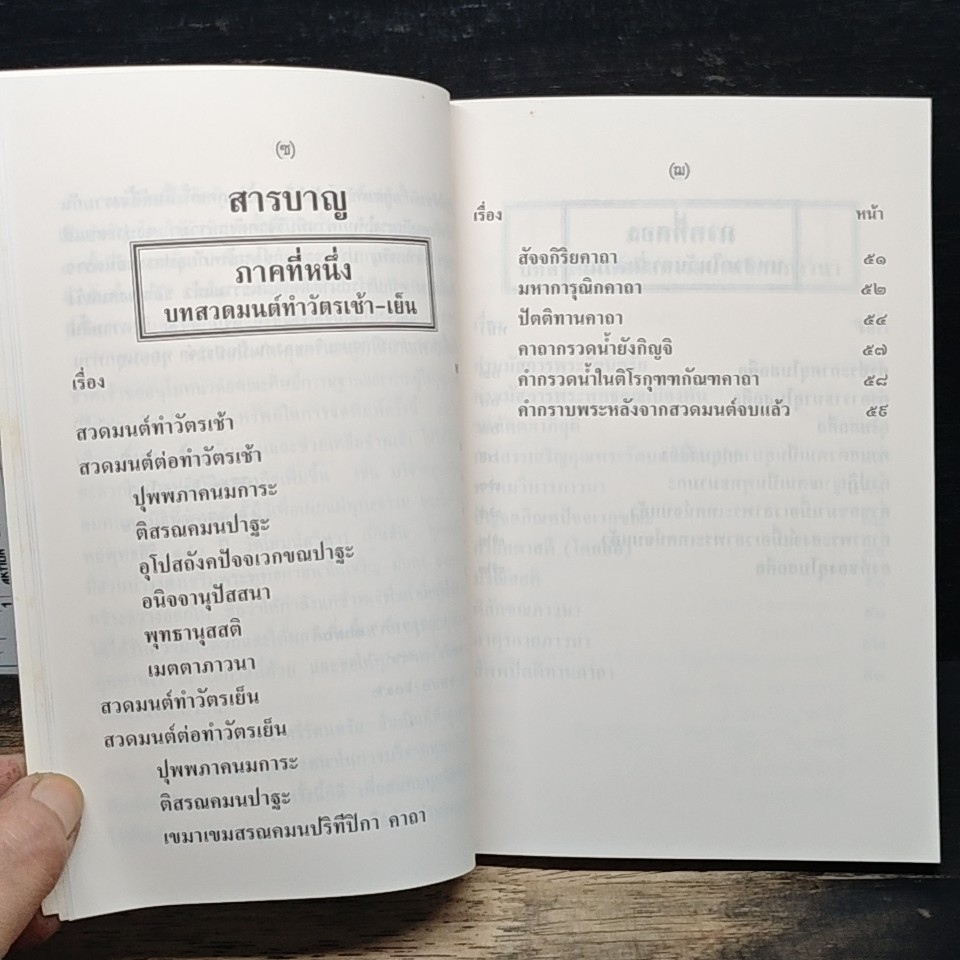 (ซ)
สารบาญ
ภาคที่หนึ่ง
บทสวดมนต์ทำวัตรเช้า-เย็น
เรื่อง
สวดมนต์ทำวัตรเช้า
สวดมนต์ต่อทำวัตรเช้า
ปุพพภาคนมการะ
ติสรณคมนปาฐะ
อุโปสถังคปัจจเวกขณปาฐะ
อนิจจานุปัสสนา
พุทธานุสสติ
เมตตาภาวนา
สวดมนต์ทำวัตรเย็น
สวดมนต์ต่อทำวัตรเย็น
ปุพพภาคนมการะ
ติสรณคมนปาฐะ
เขมาเขมสรณคมนปริทีปิกา คาถา
(ฌ)
เรื่อง หน้า
สัจจกิริยคาถา ๕๑
มหาการุณิกคาถา ๕๒
ปัตติทานคาถา ๕๔
คาถากรวดน้ำยังกิญจิ ๕๗
คำกรวดน้ำในติโรกุฑฑกัณฑคาถา ๕๘
คำกราบพระหลังจากสวดมนต์จบแล้ว ๕๙
AKTION